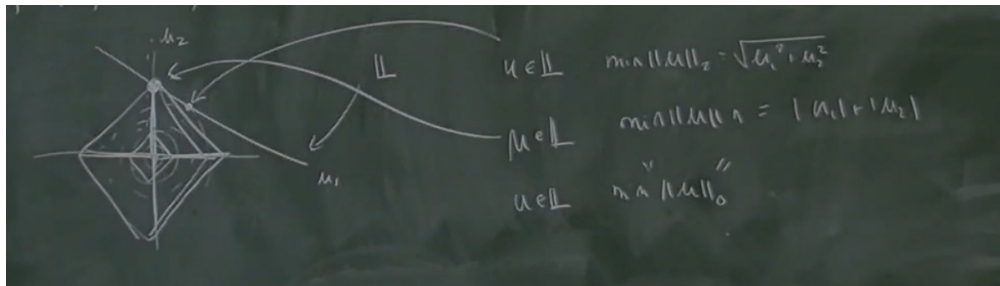 u₂
𝕃
u₁
u ∈ 𝕃 min ||u||₂ = √(u₁² + u₂²)
u ∈ 𝕃 min ||u||₁ = |u₁| + |u₂|
u ∈ 𝕃 min "||u||₀"